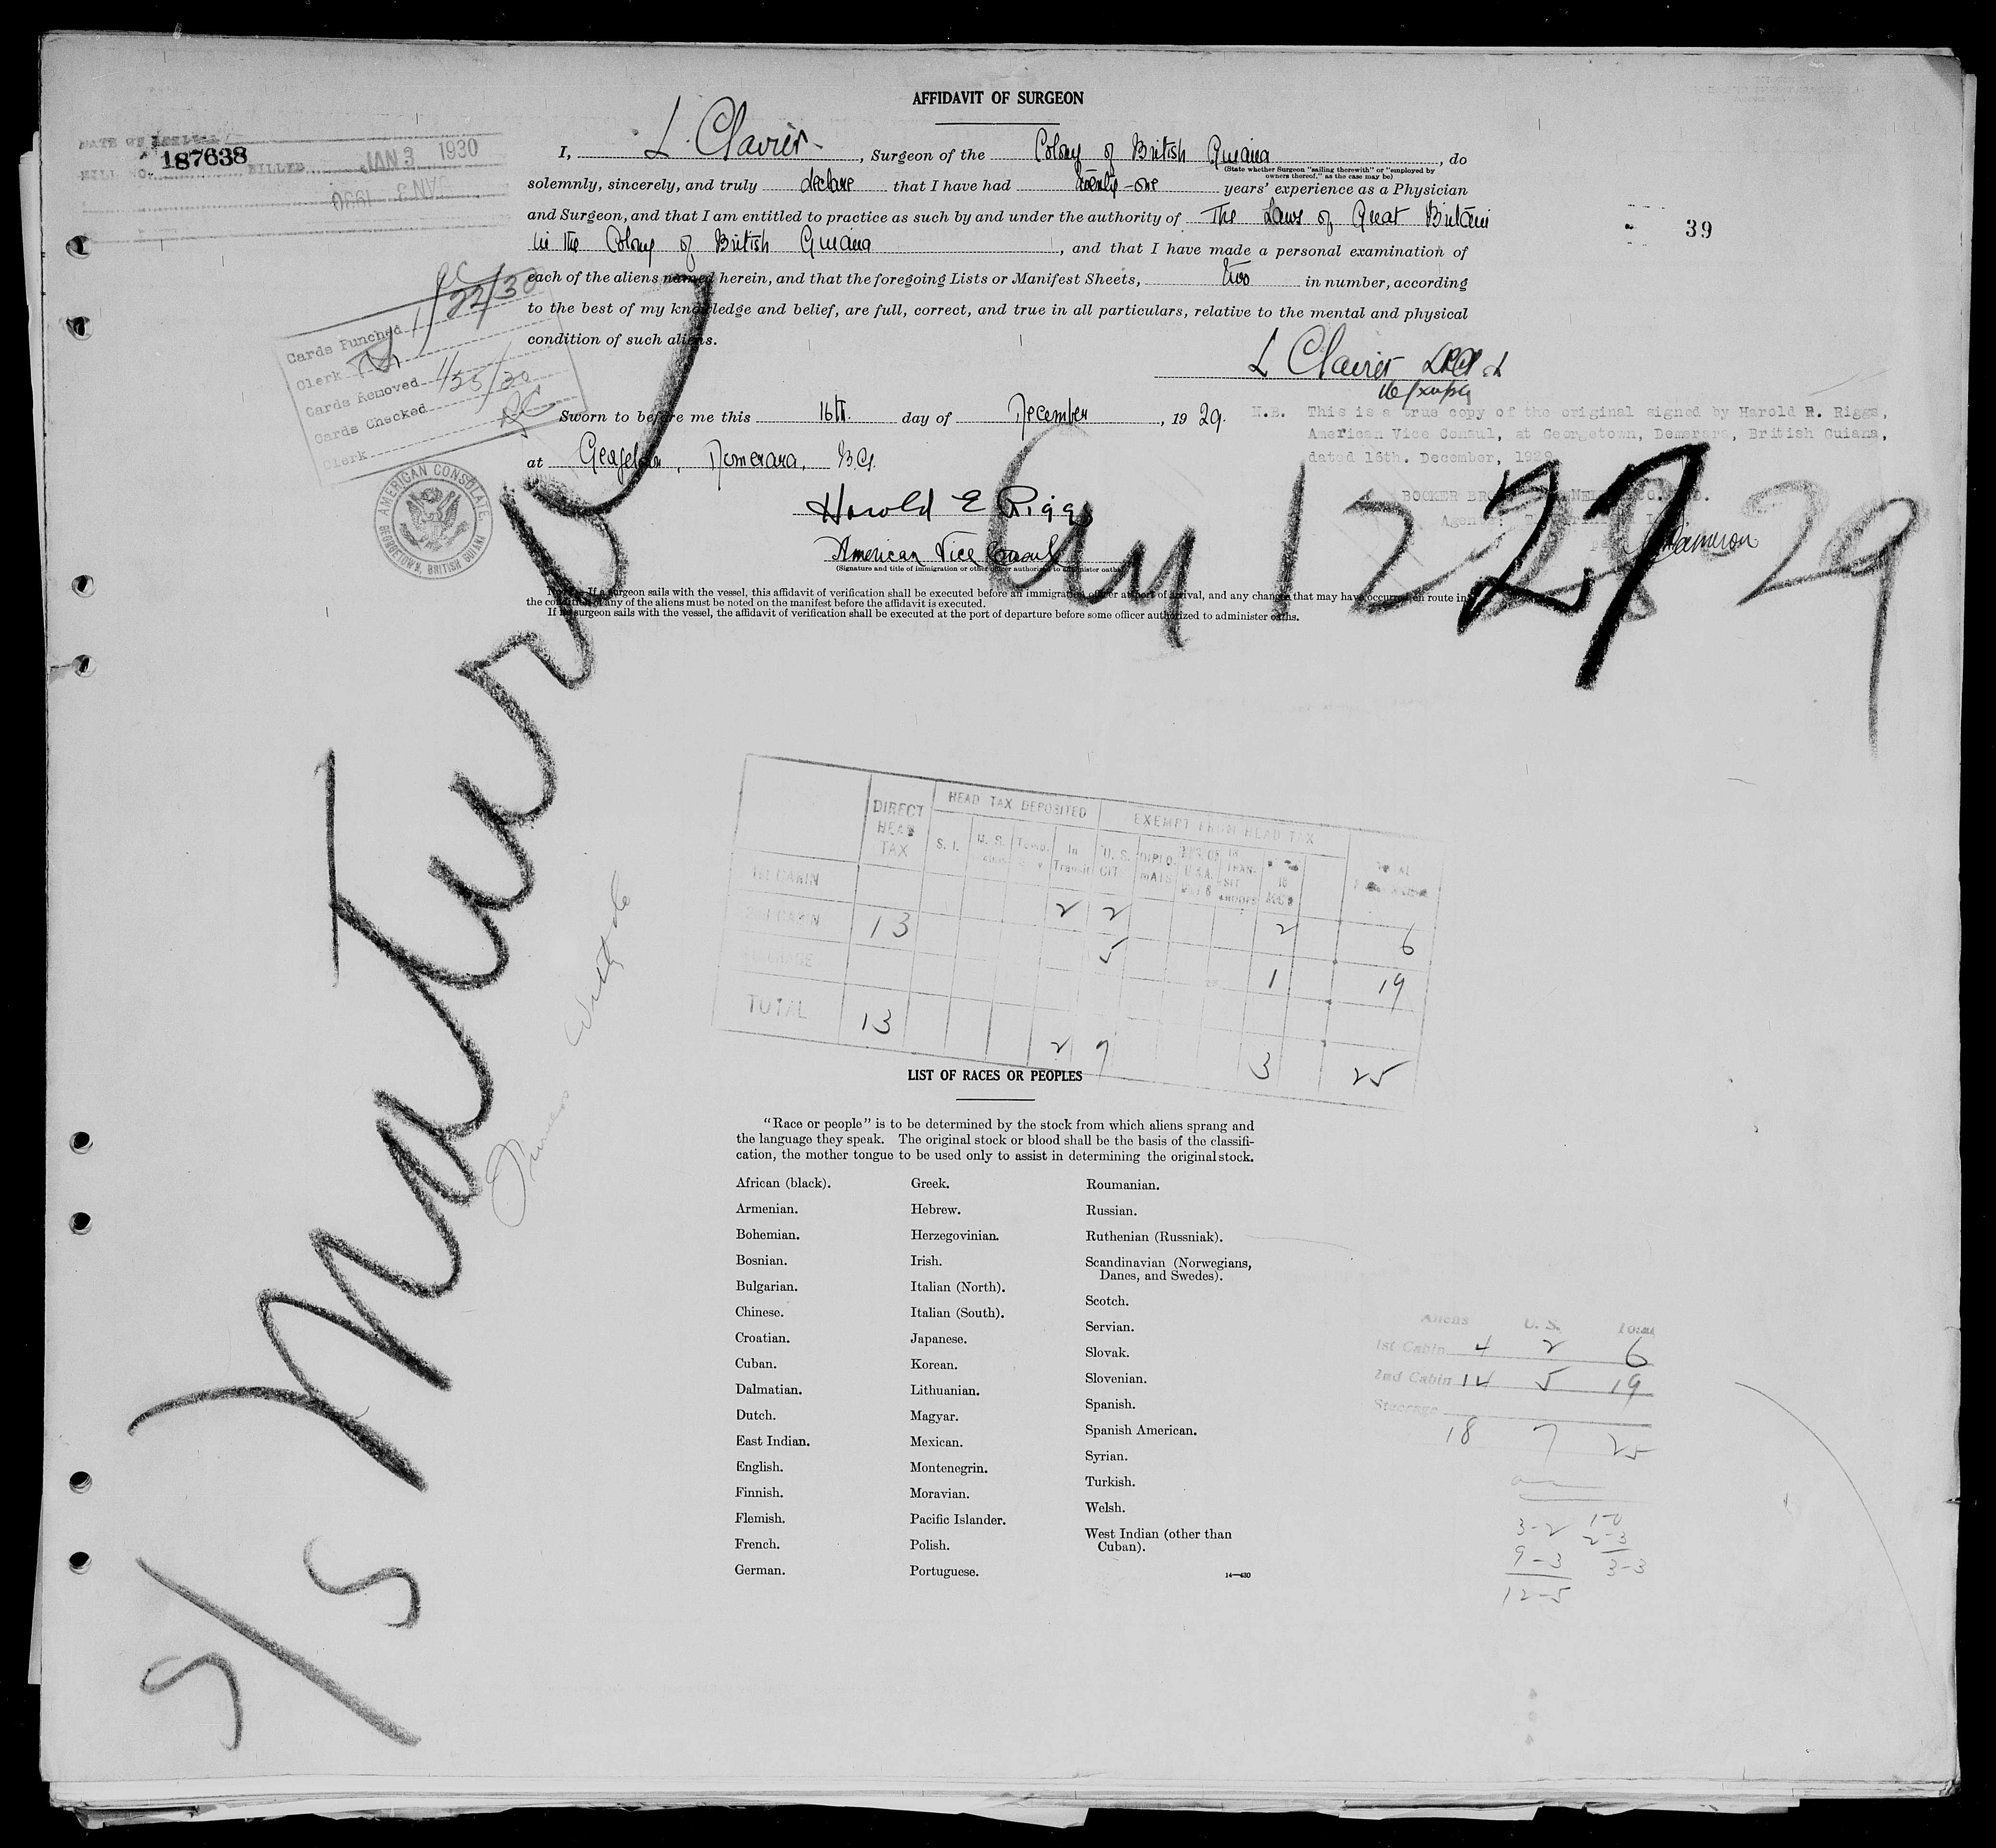 AFFIDAVIT OF SURGEON
I, L. Clavier, Surgeon of the Colony of British Guiana, do
(State whether Surgeon "sailing therewith" or "employed by
owners thereof," as the case may be)
solemnly, sincerely, and truly declare that I have had twenty-one years' experience as a Physician
and Surgeon, and that I am entitled to practice as such by and under the authority of The Laws of Great Britain
in the Colony of British Guiana, and that I have made a personal examination of
each of the aliens named herein, and that the foregoing Lists or Manifest Sheets, two in number, according
to the best of my knowledge and belief, are full, correct, and true in all particulars, relative to the mental and physical
condition of such aliens.
L Clavier
Sworn to before me this 16th. day of December, 1929.
at Georgetown, Demerara, B.G.
Harold E Riggs
American Vice Consul
(Signature and title of immigration or other officer authorized to administer oaths)
NOTE.—If a surgeon sails with the vessel, this affidavit of verification shall be executed before an immigration officer at port of arrival, and any changes that may have occurred en route in
the condition of any of the aliens must be noted on the manifest before the affidavit is executed.
If no surgeon sails with the vessel, the affidavit of verification shall be executed at the port of departure before some officer authorized to administer oaths.
DATE OF
187638
BILL NO. BILLED JAN 3 1930
JAN 3 1930
39
Cards Punched 1/22/30
Clerk
Cards Removed 1/25/30
Cards Checked
Clerk
AMERICAN CONSULATE
GEORGETOWN, BRITISH GUIANA
N.B. This is a true copy of the original signed by Harold R. Riggs,
American Vice Consul, at Georgetown, Demerara, British Guiana,
dated 16th. December, 1929
Cameron
12 27 29
S/S Matura
DIRECT HEAD TAX
HEAD TAX DEPOSITED
EXEMPT FROM HEAD TAX
S. I.
U. S.
In Transit
U. S. CIT
DIPLOMATS
TOTAL
1st CABIN 2 2 2 6
2nd CABIN 13 5 1 19
STEERAGE
TOTAL 13 2 7 3 25
LIST OF RACES OR PEOPLES
"Race or people" is to be determined by the stock from which aliens sprang and
the language they speak. The original stock or blood shall be the basis of the classifi-
cation, the mother tongue to be used only to assist in determining the original stock.
African (black).
Armenian.
Bohemian.
Bosnian.
Bulgarian.
Chinese.
Croatian.
Cuban.
Dalmatian.
Dutch.
East Indian.
English.
Finnish.
Flemish.
French.
German.
Greek.
Hebrew.
Herzegovinian.
Irish.
Italian (North).
Italian (South).
Japanese.
Korean.
Lithuanian.
Magyar.
Mexican.
Montenegrin.
Moravian.
Pacific Islander.
Polish.
Portuguese.
Roumanian.
Russian.
Ruthenian (Russniak).
Scandinavian (Norwegians,
Danes, and Swedes).
Scotch.
Servian.
Slovak.
Slovenian.
Spanish.
Spanish American.
Syrian.
Turkish.
Welsh.
West Indian (other than
Cuban).
14—430
Aliens U. S. Total
1st Cabin 4 2 6
2nd Cabin 14 5 19
Steerage
18 7 25
3-2 1-0
9-3 2-3
12-5 3-3